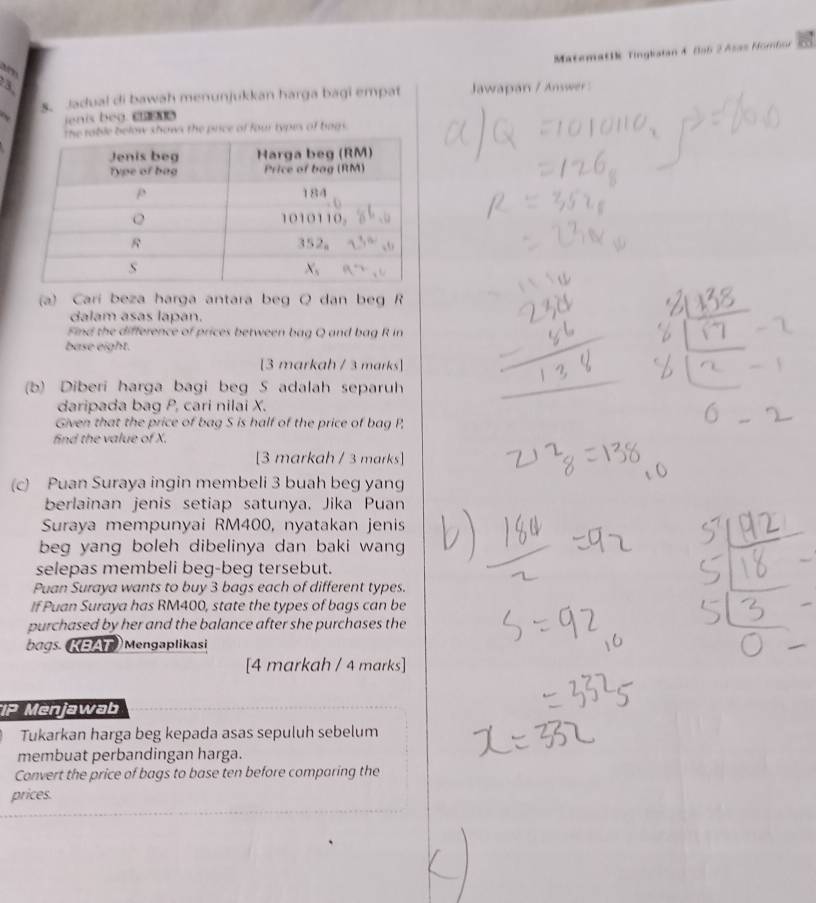 Matematik Tingkatan 4 Bab 2 Asas Nombor
5. Jadual di bawah menunjukkan harga bagi empat
jenis beg.
The table below shows the price of four types of bags.
Jenis beg Harga beg (RM)
Type of bag Price of bag (RM)
P 184
Q 1010110₂ 86
R 352₈
S X₅
(a) Cari beza harga antara beg Q dan beg R
dalam asas lapan.
Find the difference of prices between bag Q and bag R in
base eight.
[3 markah / 3 marks]
(b) Diberi harga bagi beg S adalah separuh
daripada bag P, cari nilai X.
Given that the price of bag S is half of the price of bag P,
find the value of X.
[3 markah / 3 marks]
(c) Puan Suraya ingin membeli 3 buah beg yang
berlainan jenis setiap satunya. Jika Puan
Suraya mempunyai RM400, nyatakan jenis
beg yang boleh dibelinya dan baki wang
selepas membeli beg-beg tersebut.
Puan Suraya wants to buy 3 bags each of different types.
If Puan Suraya has RM400, state the types of bags can be
purchased by her and the balance after she purchases the
bags. KBAT Mengaplikasi
[4 markah / 4 marks]
TIP Menjawab
Tukarkan harga beg kepada asas sepuluh sebelum
membuat perbandingan harga.
Convert the price of bags to base ten before comparing the
prices.
Jawapan / Answer:
a) Q = 1010110₂
= 126₈
R = 352₈
234
- 86
138
8 138
8 17 - 2
8 2 - 1
0 - 2
212₈ = 138₁₀
b) 184/2 = 92
5 92
5 18 -
5 3 -
0 -
S = 92₁₀
= 332₅
x = 332
c)